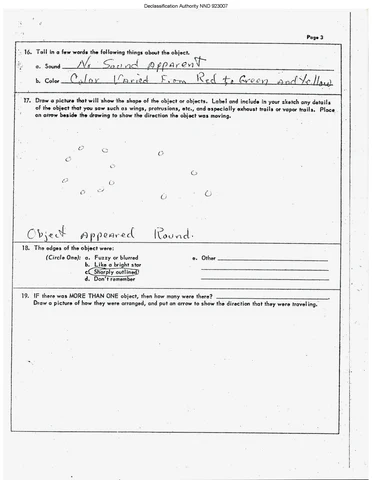 Declassification Authority NND 923007
Page 3
16. Tell in a few words the following things about the object.
a. Sound No Sound Apparent
b. Color Color Varied From Red to Green and Yellow
17. Draw a picture that will show the shape of the object or objects. Label and include in your sketch any details
of the object that you saw such as wings, protrusions, etc., and especially exhaust trails or vapor trails. Place
an arrow beside the drawing to show the direction the object was moving.
Object Appeared Round.
18. The edges of the object were:
(Circle One): a. Fuzzy or blurred e. Other
b. Like a bright star
c. Sharply outlined
d. Don't remember
19. IF there was MORE THAN ONE object, then how many were there?
Draw a picture of how they were arranged, and put an arrow to show the direction that they were traveling.